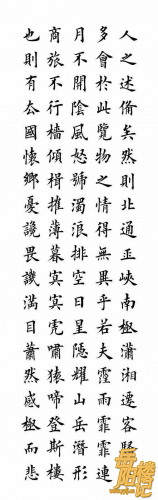 人之述俻矣然則北通巫峽南極瀟湘遷客騷人
多會於此覽物之情得無異乎若夫霪雨霏霏連
月不開陰風怒號濁浪排空日星隱耀山岳潛形
商旅不行檣傾楫摧薄暮冥冥虎嘯猿啼登斯樓
也則有厺國懷鄉憂讒畏譏滿目蕭然感極而悲
岳陽樓記